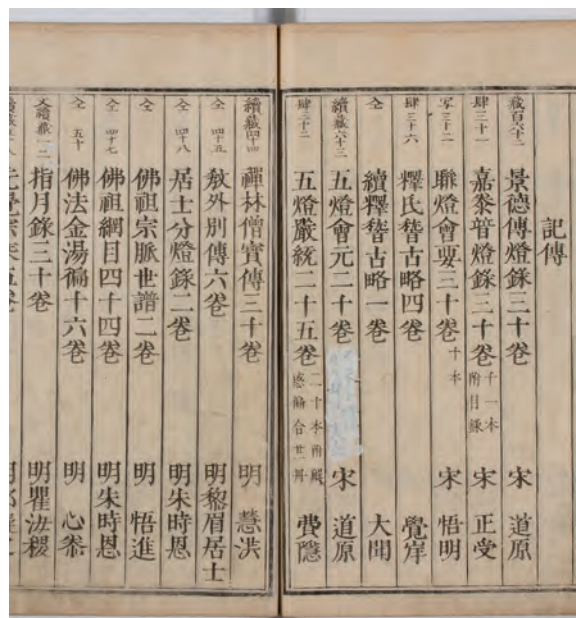 記傳
藏百六十二 景德傳燈錄三十卷 宋 道原
肆三十一 嘉泰普燈錄三十卷 千一本 附目錄 宋 正受
寫三十二 聯燈會要三十卷 十本 宋 悟明
肆三十六 釋氏稽古略四卷 覺岸
仝 續釋稽古略一卷 大聞
續藏六十三 五燈會元二十卷 宋 道原
肆三十二 五燈嚴統二十五卷 二十本附解 惑偹合廿 費隱
續藏四十四 禪林僧寶傳三十卷 明 慧洪
仝 四十五 敎外別傳六卷 明黎眉居士
仝 四十八 居士分燈錄二卷 明朱時恩
仝 佛祖宗脈世譜二卷 明 悟進
仝 四十七 佛祖綱目四十四卷 明朱時恩
仝 五十 佛法金湯徧十六卷 明 心泰
又續藏一二 指月錄三十卷 明瞿汝稷